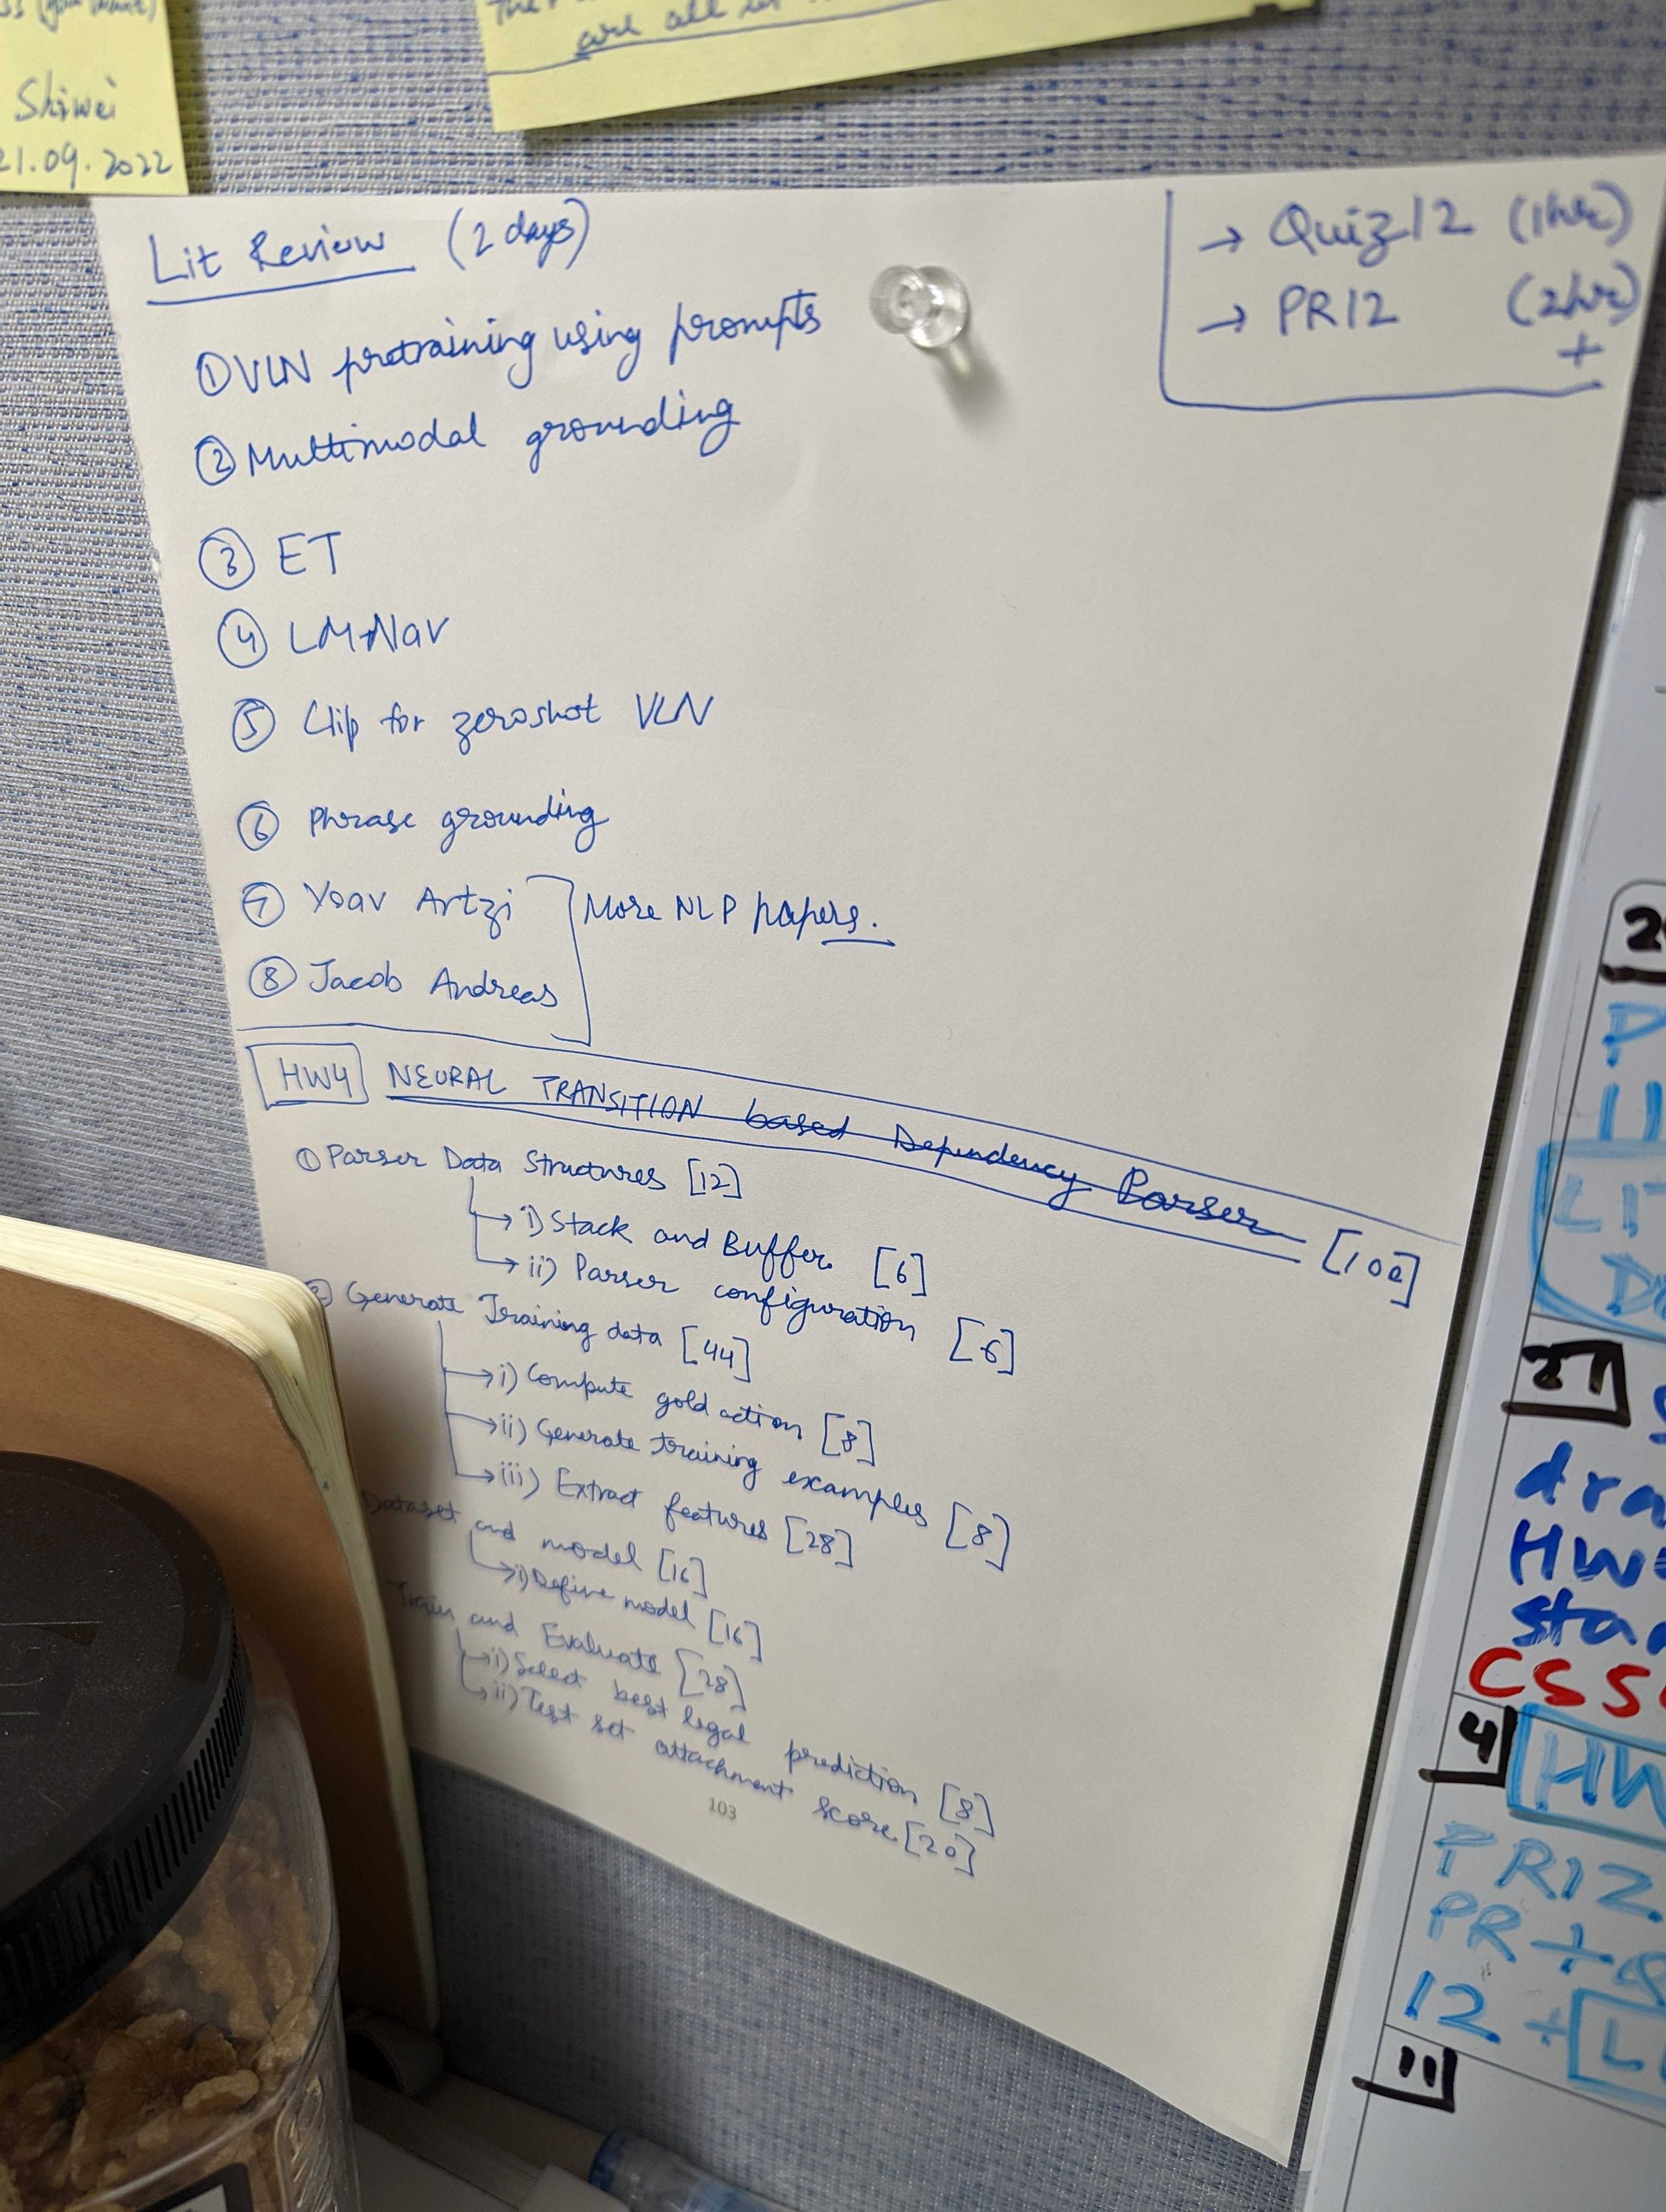 Shiwei
21.09.2022
are all
Lit Review (2 days)
→ Quiz12 (1hr)
→ PR12 (2hr)
+
① VLN pretraining using prompts
② Multimodal grounding
③ ET
④ LM-Nav
⑤ Clip for zeroshot VLN
⑥ Phrase grounding
⑦ Yoav Artzi
⑧ Jacob Andreas
More NLP papers.
HW4 NEURAL TRANSITION based Dependency Parser [100]
① Parser Data Structures [12]
→ i) Stack and Buffer [6]
→ ii) Parser configuration [6]
② Generate Training data [44]
→ i) Compute gold action [8]
→ ii) Generate training examples [8]
→ iii) Extract features [28]
Dataset and model [16]
→ i) Define model [16]
Train and Evaluate [28]
→ i) Select best legal prediction [8]
→ ii) Test set attachment score [20]
103
27
dra
HW
sta
CSS
4
HW
PR12
PR +
12 +
11